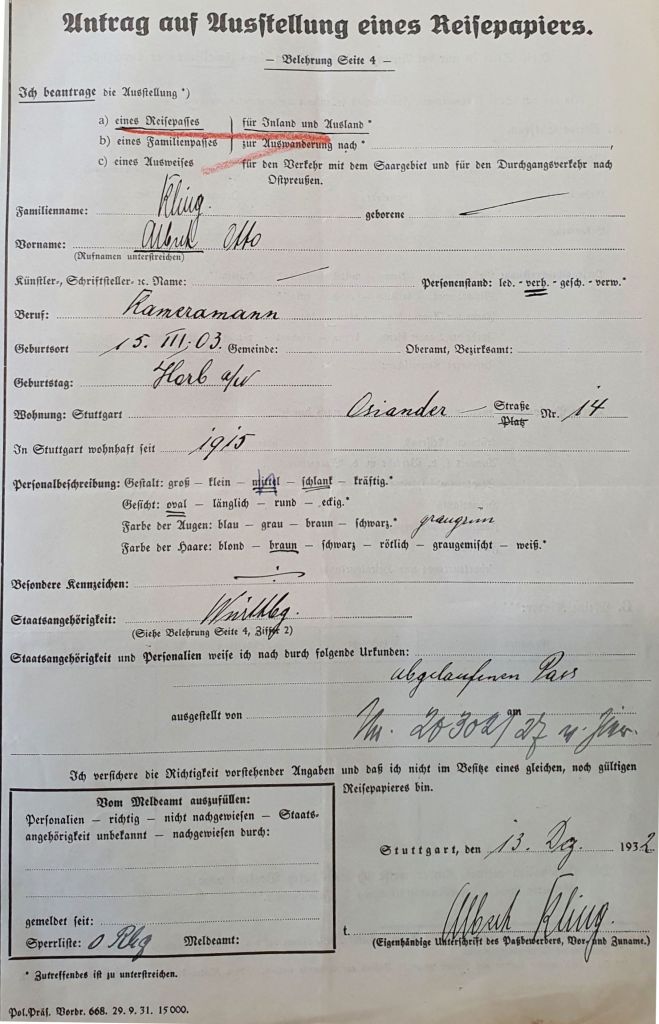 Antrag auf Ausstellung eines Reisepapiers.
— Belehrung Seite 4 —
Ich beantrage die Ausstellung *)
a) eines Reisepasses für Inland und Ausland *
b) eines Familienpasses zur Auswanderung nach *
c) eines Ausweises für den Verkehr mit dem Saargebiet und für den Durchgangsverkehr nach
Ostpreußen.
Familienname: Kling. geborene —
Vorname: Albrecht Otto
(Rufnamen unterstreichen)
Künstler-, Schriftsteller- ꝛc. Name: — Personenstand: led. - verh. - gesch. - verw.*
Beruf: Kameramann
Geburtsort 15. III. 03. Gemeinde: Oberamt, Bezirksamt:
Geburtstag: Horb a/N
Wohnung: Stuttgart Osiander — Straße Nr. 14
Platz
In Stuttgart wohnhaft seit 1915
Personalbeschreibung: Gestalt: groß — klein — mittel — schlank — kräftig.*
Gesicht: oval — länglich — rund — eckig.*
Farbe der Augen: blau — grau — braun — schwarz.* graugrün
Farbe der Haare: blond — braun — schwarz — rötlich — graugemischt — weiß.*
Besondere Kennzeichen: ÷
Staatsangehörigkeit: Württbg.
(Siehe Belehrung Seite 4, Ziffer 2)
Staatsangehörigkeit und Personalien weise ich nach durch folgende Urkunden:
abgelaufenen Pass
ausgestellt von am
Nr. 20302/27 v. hier.
Ich versichere die Richtigkeit vorstehender Angaben und daß ich nicht im Besitze eines gleichen, noch gültigen
Reisepapieres bin.
Vom Meldeamt auszufüllen:
Personalien — richtig — nicht nachgewiesen — Staats-
angehörigkeit unbekannt — nachgewiesen durch:
gemeldet seit:
Sperrliste: 0 Meldeamt:
Stuttgart, den 13. Dez. 1932
t. Albrecht Kling.
(Eigenhändige Unterschrift des Paßbewerbers, Vor- und Zuname.)
* Zutreffendes ist zu unterstreichen.
Pol.Präs. Vordr. 668. 29. 9. 31. 15 000.